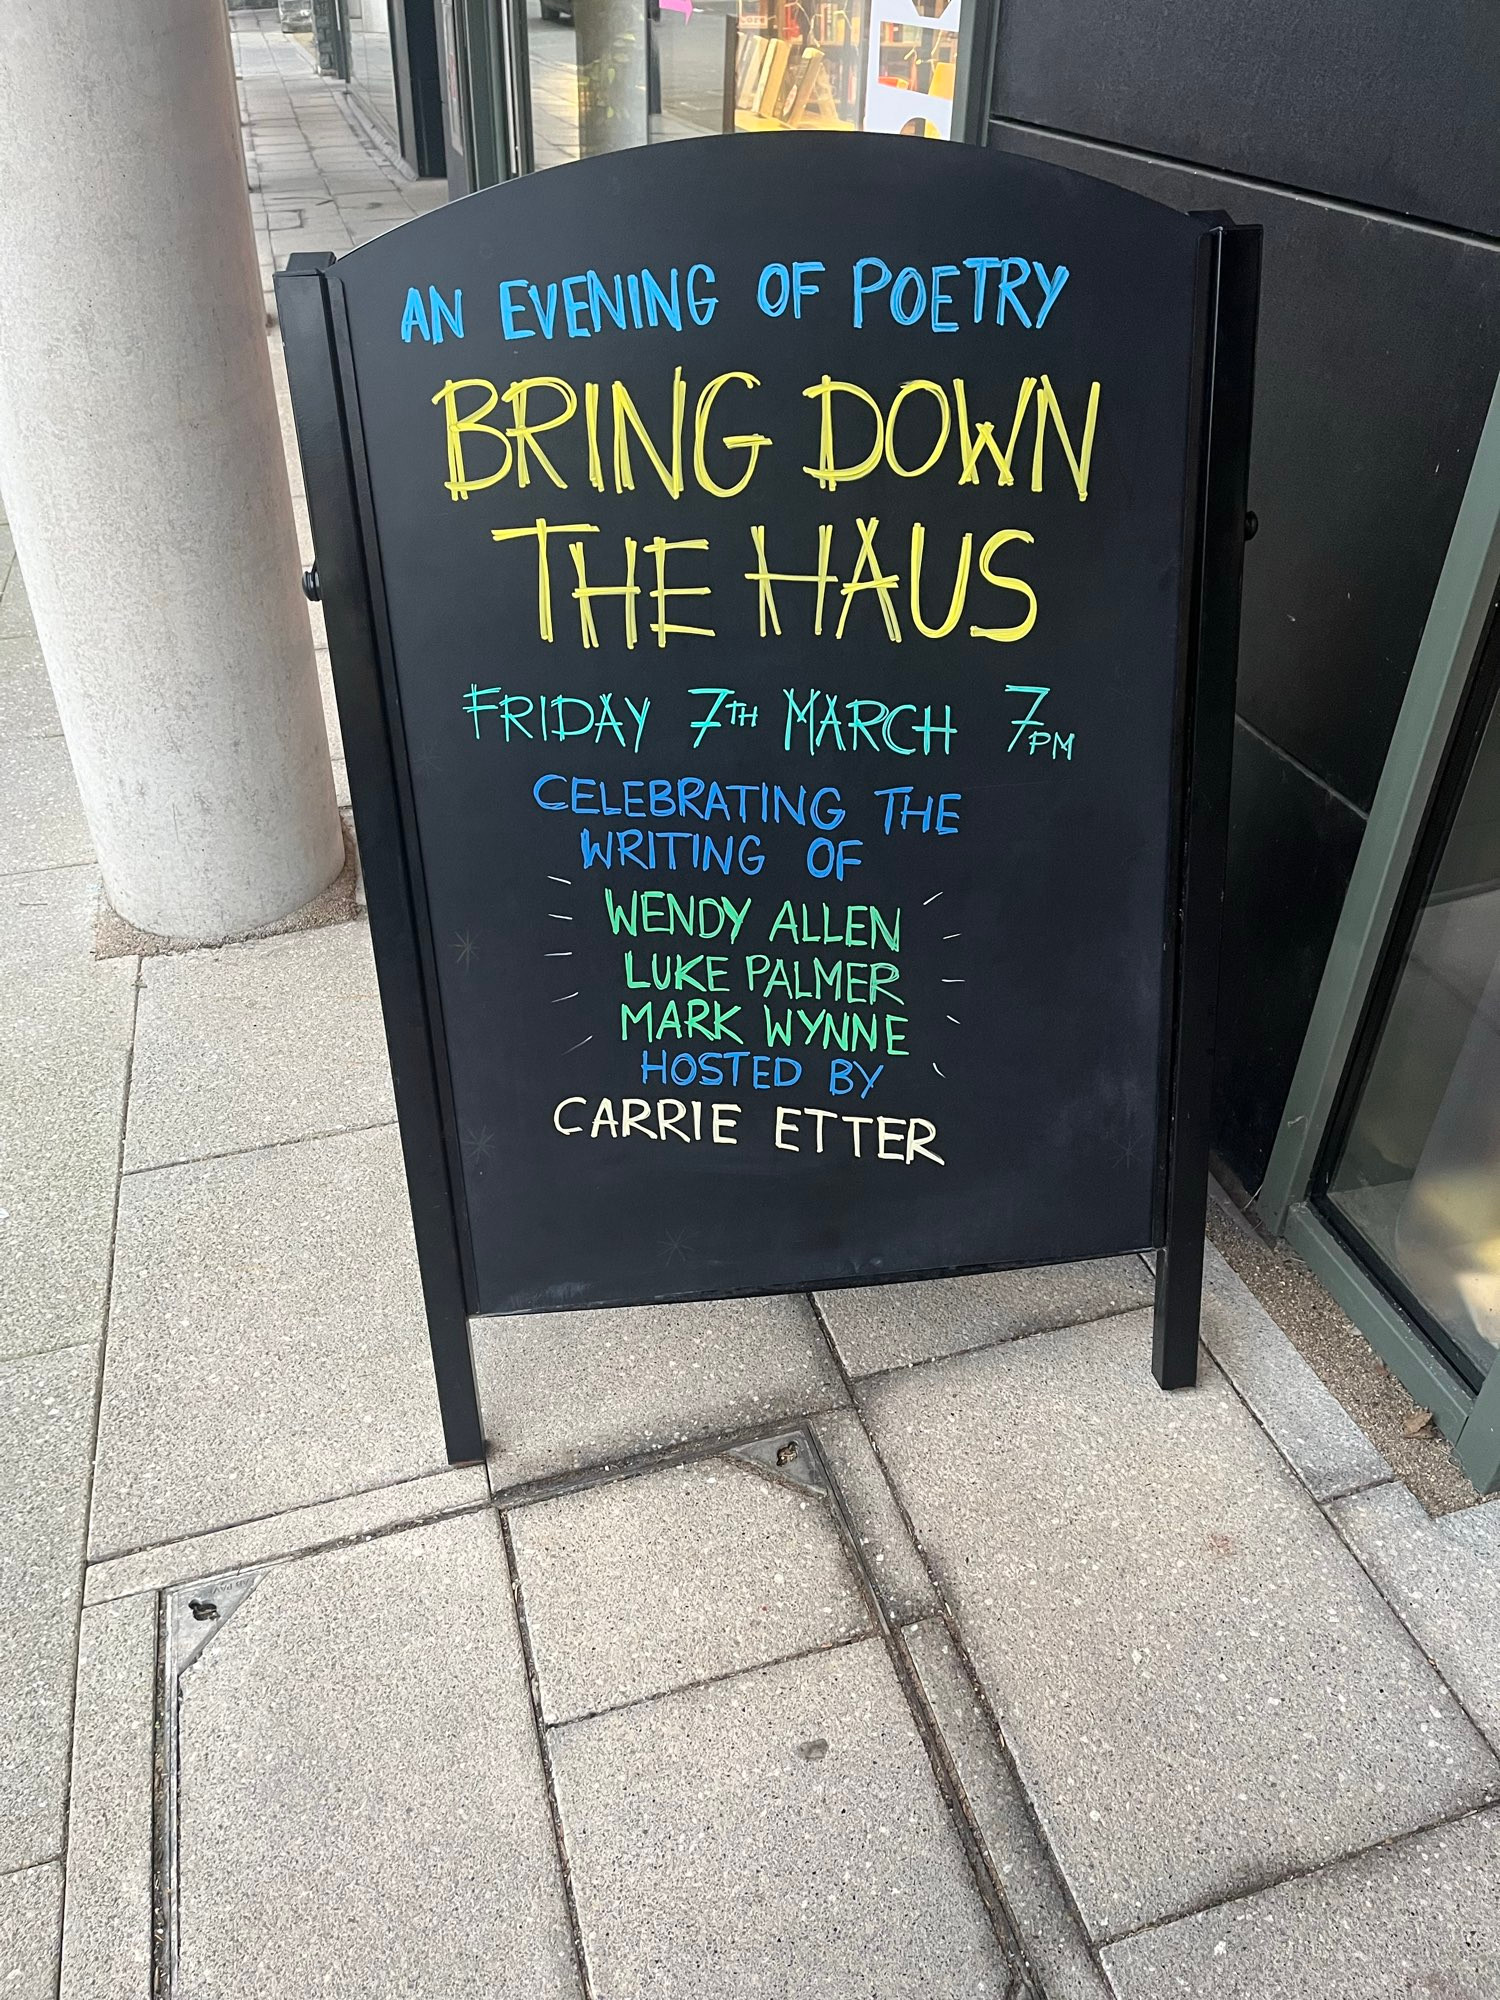 AN EVENING OF POETRY
BRING DOWN
THE HAUS
FRIDAY 7TH MARCH 7PM
CELEBRATING THE
WRITING OF
WENDY ALLEN
LUKE PALMER
MARK WYNNE
HOSTED BY
CARRIE ETTER